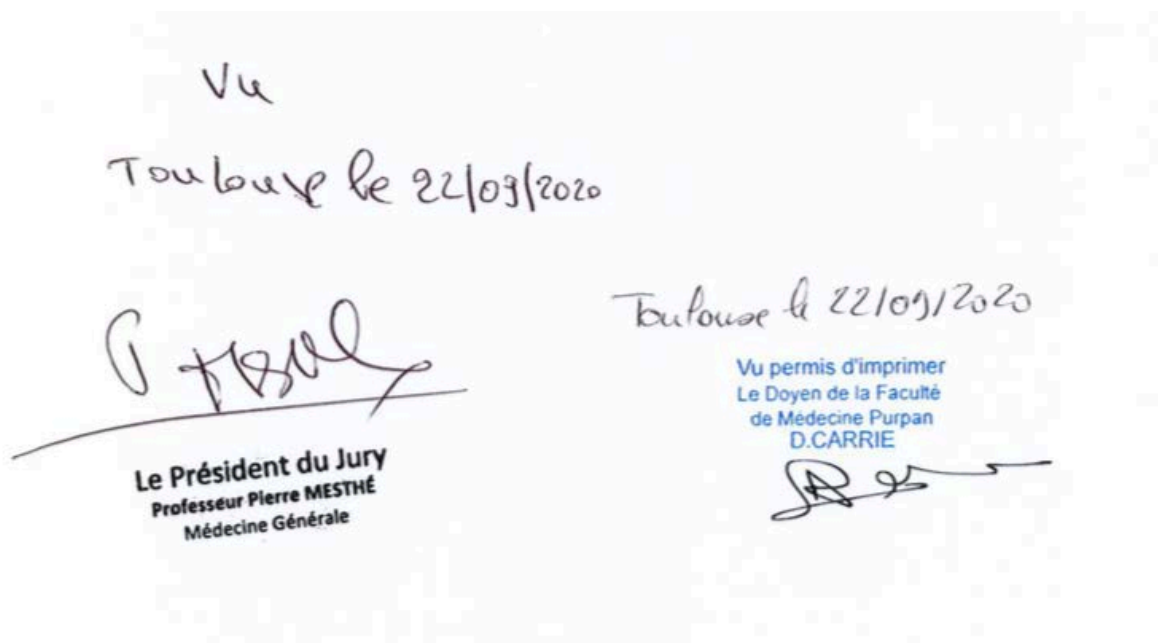 Vu
Toulouse le 22/09/2020
Le Président du Jury
Professeur Pierre MESTHÉ
Médecine Générale
Toulouse le 22/09/2020
Vu permis d'imprimer
Le Doyen de la Faculté
de Médecine Purpan
D.CARRIE